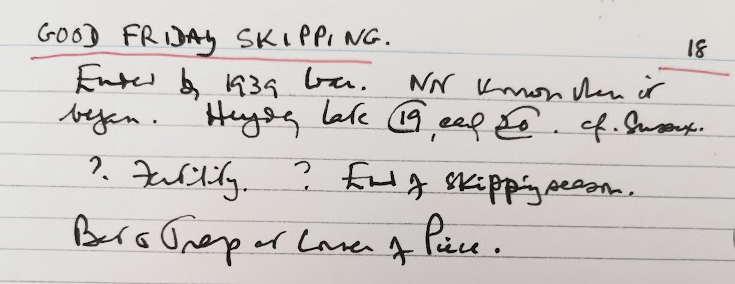 GOOD FRIDAY SKIPPING. 18
Ended by 1939 War. NN known when it
began. Heyday late 19, early 20. cf. Sussex.
? Fertility. ? End of skipping season.
Bat & Trap at corner of Piece.